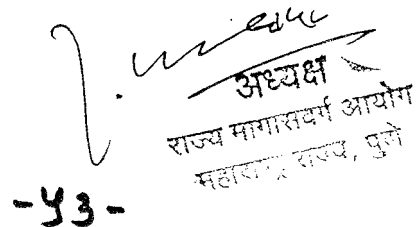 अध्यक्ष
राज्य मागासवर्ग आयोग
महाराष्ट्र राज्य, पुणे
-५३-